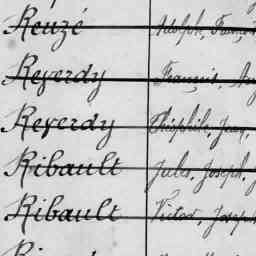 Reuzé Adolph, Franç
Reverdy François, Aug
Reverdy Théophile, Jean,
Ribault Jules, Joseph, J
Ribault Victor, Joseph